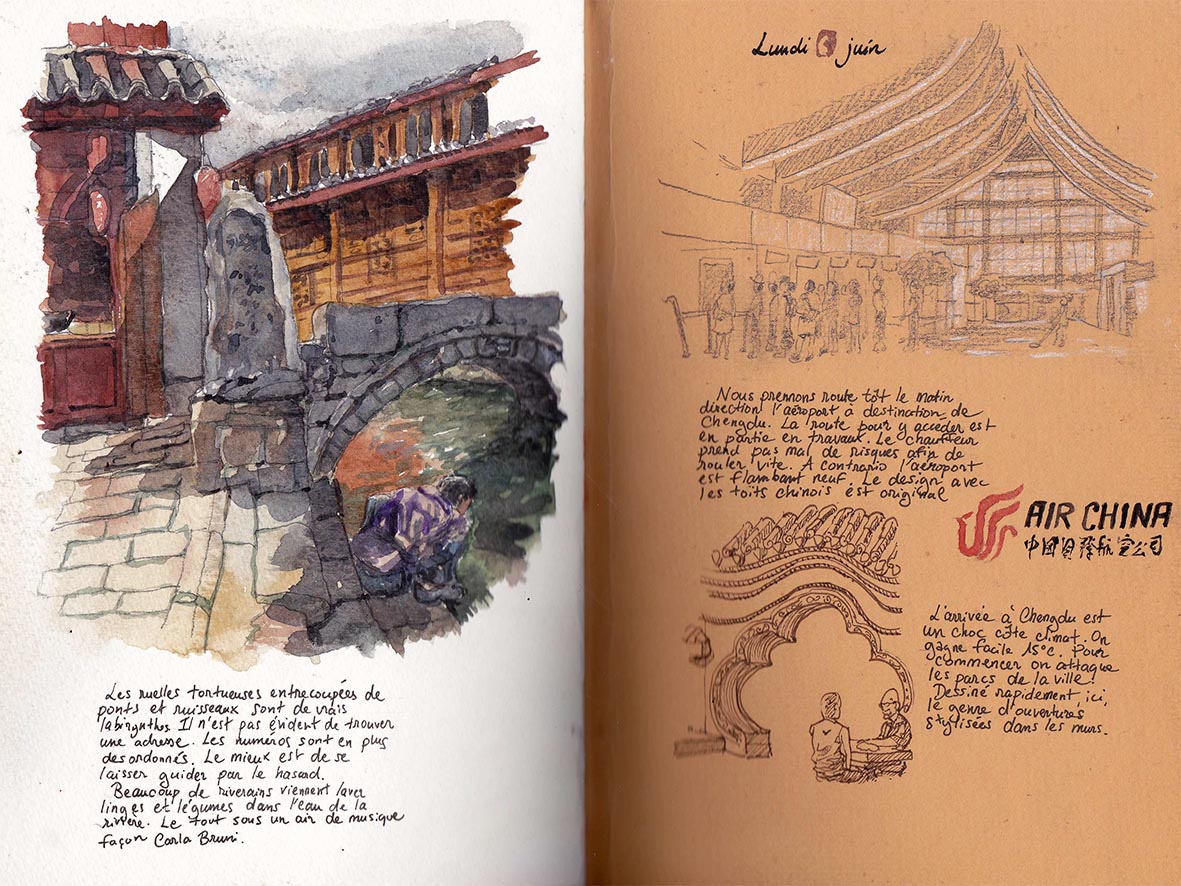 Les ruelles tortueuses entrecoupées de
ponts et ruisseaux sont de vrais
labyrinthes. Il n'est pas évident de trouver
une adresse. Les numéros sont en plus
desordonnés. Le mieux est de se
laisser guider par le hasard.
Beaucoup de riverains viennent laver
linges et légumes dans l'eau de la
rivière. Le tout sous un air de musique
façon Carla Bruni.
Lundi 6 juin
Nous prennons route tôt le matin
direction l'aéroport à destination de
Chengdu. La route pour y accéder est
en partie en travaux. Le chauffeur
prend pas mal de risques afin de
rouler vite. A contrario l'aéroport
est flambant neuf. Le design avec
les toits chinois est original
AIR CHINA
中國 航空公司
L'arrivée à Chengdu est
un choc côté climat. On
gagne facile 15°c. Pour
commencer on attaque
les parcs de la ville!
Dessiné rapidement, ici,
le genre d'ouvertures
stylisées dans les murs.